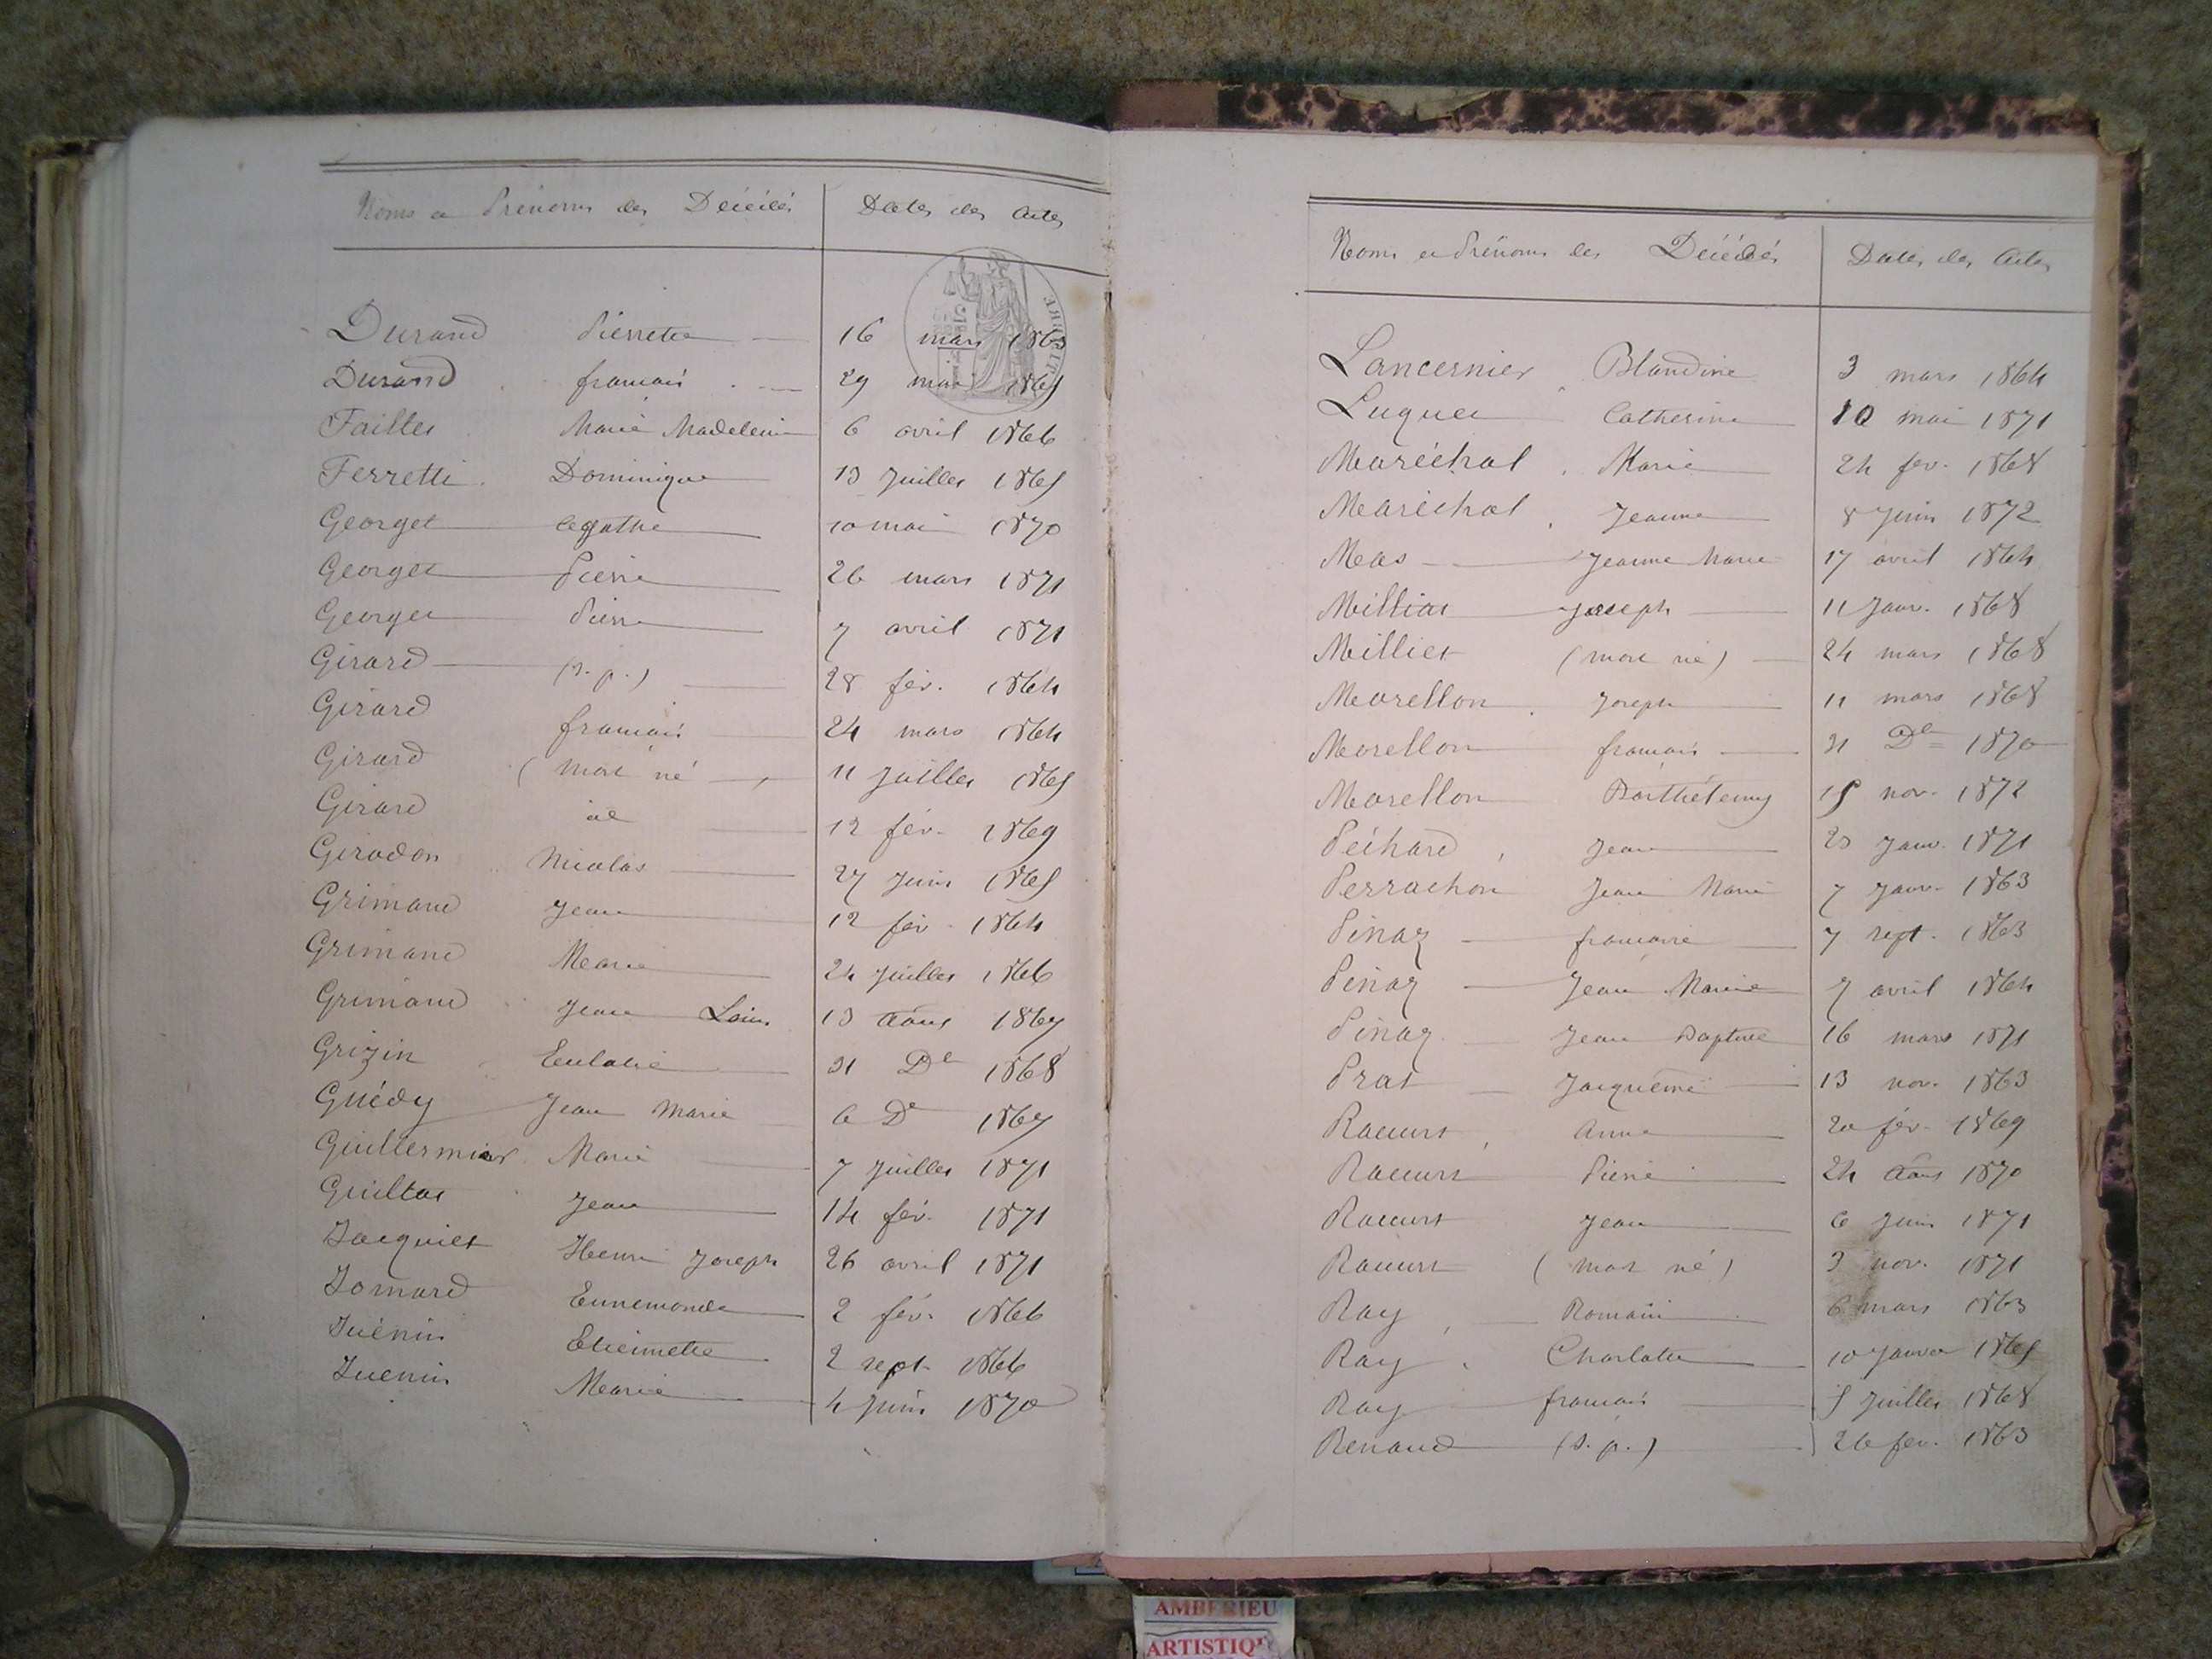 Noms et Prénoms des Décédés Dates des Actes
Durand Pierrette 16 mars 1863
Durand françois 29 mai 1865
Failles Marie Madeleine 6 avril 1866
Ferretti Dominique 13 Juillet 1865
Georget Agathe 10 mai 1870
Georget Pierre 26 mars 1871
Georget Pierre 7 avril 1871
Girard (s. p.) 28 fév. 1864
Girard françois 24 mars 1864
Girard (mort né) 11 Juillet 1865
Girard id 12 fév. 1869
Girodon Nicolas 27 Juin 1865
Grimand Jean 12 fév. 1864
Grimand Marie 24 Juillet 1866
Grimand Jean Louis 13 Août 1867
Grizin Eulalie 31 Dᵉ 1868
Guédy Jean Marie 6 Dᵉ 1867
Guillermier Marie 7 Juillet 1871
Guillot Jean 14 fév. 1871
Jacquiet Henri Joseph 26 avril 1871
Jomard Ennemonde 2 fév. 1866
Juénin Etiennette 2 sept. 1866
Juenin Marie 4 Juin 1870
Noms et Prénoms des Décédés Dates des Actes
Lancernier Blandine 3 mars 1864
Luquet Catherine 10 mai 1871
Maréchal Marie 24 fév. 1868
Maréchal Jeanne 8 Juin 1872
Mas Jeanne Marie 17 avril 1864
Milliat Joseph 11 Janv. 1868
Milliet (mort né) 24 mars 1868
Morellon Joseph 11 mars 1868
Morellon françois 31 Dᵉ 1870
Morellon Barthélemy 15 nov. 1872
Péchard Jean 23 Janv. 1871
Perrachon Jean Marie 7 Janv. 1863
Pinaz françoise 7 sept. 1863
Pinaz Jean Marie 7 avril 1864
Pinaz Jean Baptiste 16 mars 1871
Prat Jacqueme 13 nov. 1863
Racurt Anne 20 fév. 1869
Racurt Pierre 24 Août 1870
Racurt Jean 6 Juin 1871
Racurt (mort né) 3 nov. 1871
Ray Romain 6 mars 1863
Ray Charlotte 10 Janvier 1865
Ray françois 5 Juillet 1868
Renaud (s. p.) 26 fév. 1863
AMBERIEU